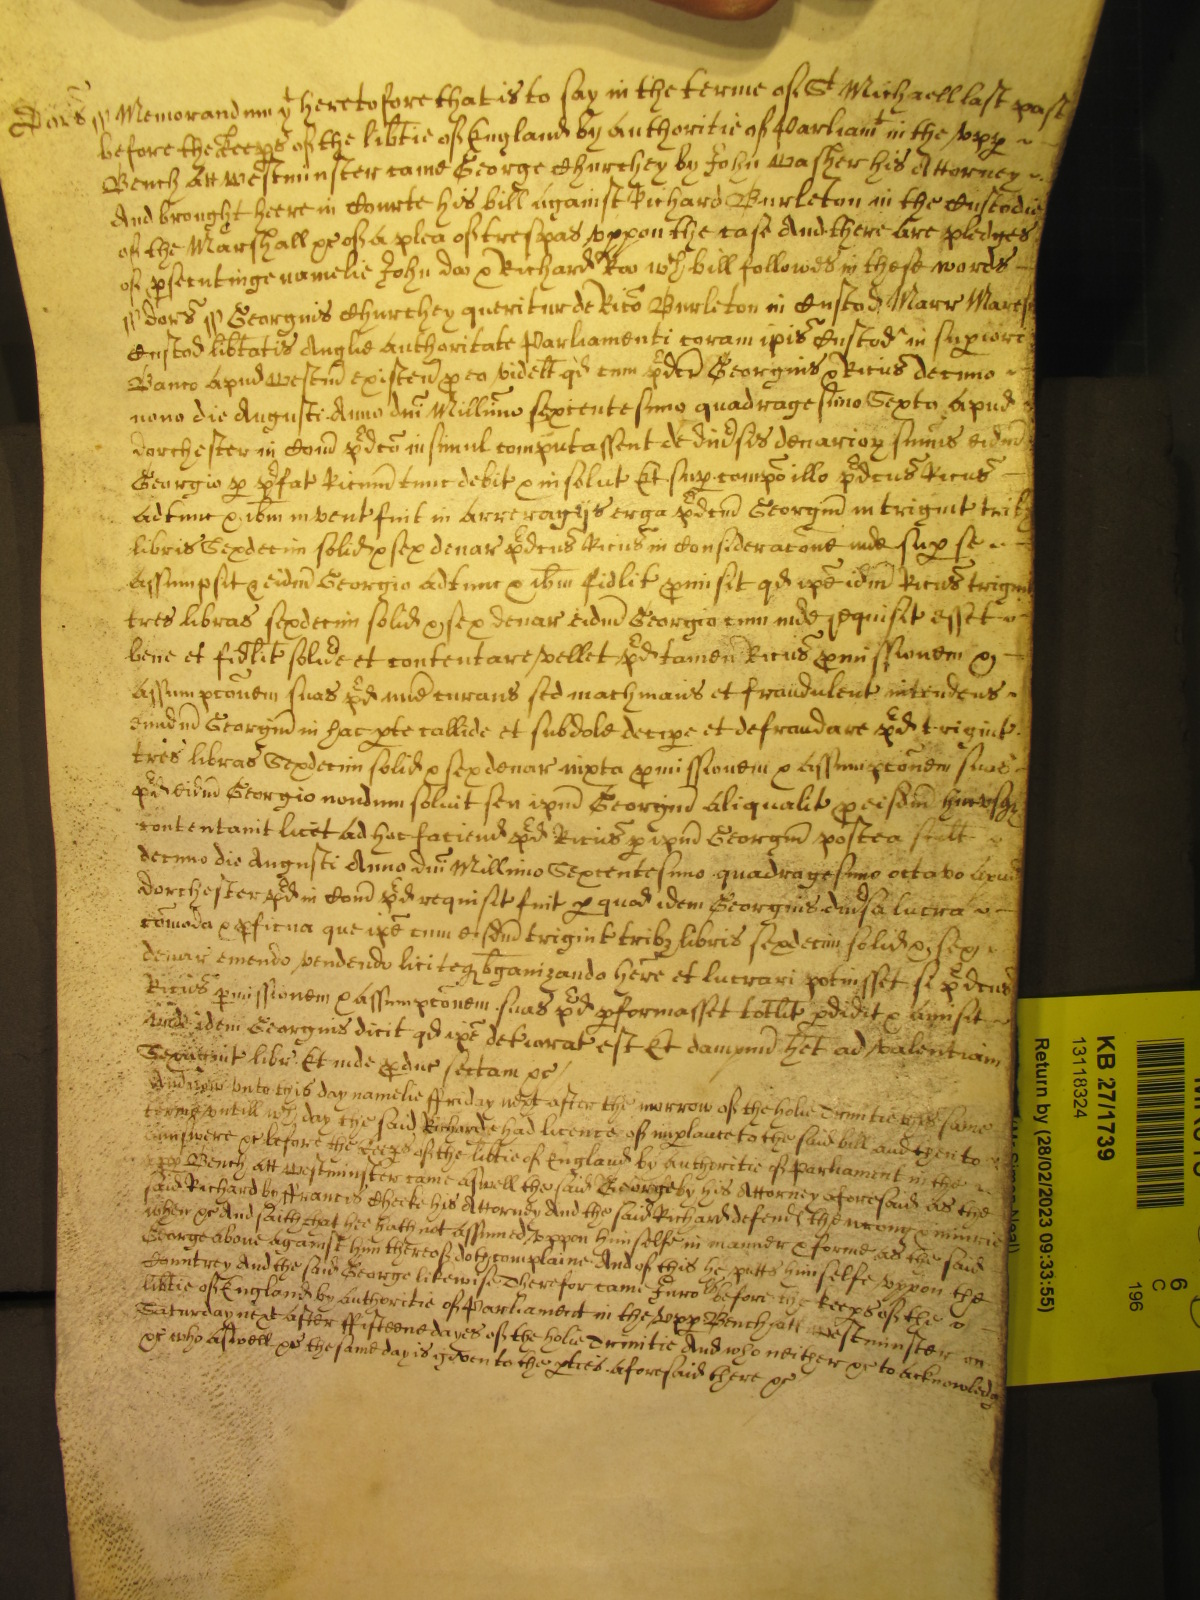 Dors ss Memorandum yt heretofore that is to say in the terme of St Michaell last past
before the Keeps of the libtie of England by Authoritie of Parliamt in the vpp
Bench att Westminster came George Churchey by John Washer his Attorney
And brought heere in Courte his bill against Richard Burleton in the Custodie
of the Marshall &c of a plea of trespas vppon the case And there are pledges
of psecutinge namelie John doo & Richard Roo wch bill followes in these words
ss Dors ss Georgius Churchey queritur de Rico Burleton in Custod Marr Maresc
Custod libtatis Anglie authoritate Parliamenti coram ipis Custod in supiore
Banco apud Westm existen p eo videlt qd cum pdcus Georgius & Ricus decimo
nono die Augusti Anno dni Millimo sexcentesimo quadragesimo Sexto apud
Dorchester in Com pdco insimul computassent de divsis denarioz sumis eidm
Georgio p pfat Ricum tunc debit & insolut Et sup compo illo pdcus Ricus
adtunc & ibm invent fuit in arreragijs erga pdcm Georgium in trigint tribz
libris Sexdecim solid & sex denar pdcus Ricus in Consideracone inde sup se
Assumpsit & eidm Georgio adtunc & ibm fidlit pmisit qd ipe idm Ricus trigint
tres libras sexdecim solid & sex denar eidm Georgio cum inde requisit esset
bene et fidlit solvere et contentare vellet pd tamen Ricus pmissionem &
Assumpconem suas pd minime curans sed machinans et fraudulent intendens
eundm Georgium in hac pte callide et subdole decipe et defraudare pd trigint
tres libras Sexdecim solid & sex denar iuxta pmissionem & Assumpconem suas
pd eidm Georgio nondum solvit seu ipm Georgium aliqualit p eisdm hucusqz
contentavit licet ad hoc faciend pd Ricus p ipm Georgium postea scilt
decimo die Augusti Anno dni Millimo Sexcentesimo quadragesimo octavo apud
Dorchester pd in Com pd requisit fuit p quod idem Georgius divsa lucra
comoda & pficua que ipe cum eisdm trigint tribz libris sexdecim solid & sex
denar emendo vendendo liciteqz bganizando here et lucrari potuisset si pdcus
Ricus pmissionem & Assumpconem suas pd pformasset totlit pdidit & amisit
Unde idem Georgius dicit qd ipe deteriorat est Et dampnum het ad valentiam
Sexagint libr Et inde pduc sectam &c
And now vnto this day namelie ffriday next after the morrow of the holie Trinitie this same
terme vntill wch day the said Richard had licence of implaute to the said bill and then to
answere &c before the Keeps of the libtie of England by Authoritie of Parliament in the
vpp Bench att Westminster came aswell the said George by his Attorney aforesaid as the
said Richard by ffrancis Cheeke his Attorney And the said Richard defends the wrong & iniurie
when &c And saith that hee hath not assumed vppon himselfe in manner & forme as the said
George above against him thereof doth complaine And of this he putts himselfe vppon the
Countrey And the said George likewise Therefor came Juro before the keeps of the
libtie of England by Authoritie of Parliament in the vpp Bench att Westminster on
Saturday next after ffifteene dayes of the holie Trinitie And who neither &c to acknowledg
&c who aswell &c the same day is given to the pties aforesaid there &c
KB 27/1739
13118324
Return by (28/02/2023 09:33:55)
6
C
196